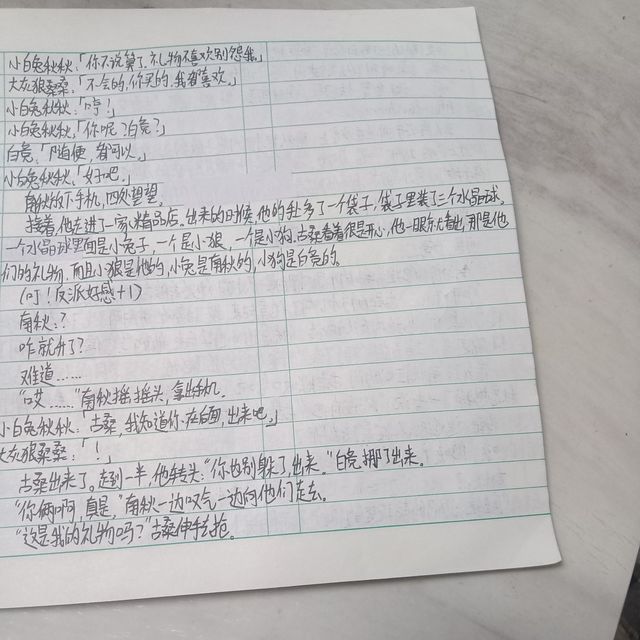 小白兔秋秋:「你不说算了,礼物不喜欢别怨我。」
大灰狼桑桑:「不会的,你买的,我都喜欢。」
小白兔秋秋:「哼!」
小白兔秋秋:「你呢?白竞?」
白竞:「随便,都可以。」
小白兔秋秋:「好吧。」
南秋放下手机,四处望望,
接着,他走进了一家精品店。出来的时候,他的手上多了一个袋子,袋子里装了三个水晶球,
一个水晶球里面是小兔子,一个是小狼,一个是小狗。古桑看着很是开心,他一眼就看出,那是他
们的礼物,而且小狼是他的,小兔是南秋的,小狗是白竞的。
(叮!反派好感+1)
南秋:?
咋就升了?
难道……
“哎……”南秋摇摇头,拿出手机。
小白兔秋秋:「古桑,我知道你在后面,出来吧。」
大灰狼桑桑:「!」
古桑出来了。走到一半,他转头:“你也别躲了,出来。”白竞挪了出来。
“你俩啊,真是”南秋一边叹气一边向他们走去。
“这是我的礼物吗?”古桑伸手去抢。